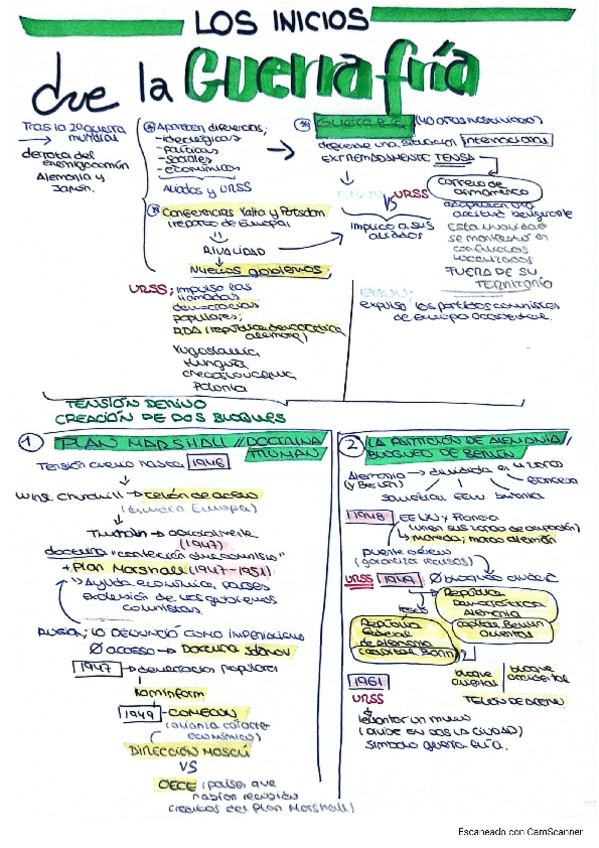 LOS INICIOS
de la Guerra fría
Tras la 2ª guerra mundial
derrota del enemigo común
Alemania y Japón.
Aparecen diferencias;
-ideológicas
-políticas
-sociales
-económicas
Aliados y URSS
Conferencias Yalta y Potsdam
(reparto de Europa)
RIVALIDAD
Nuevos problemas;
Guerra fría (40 años
describe una situación internacional
EXTREMADAMENTE TENSA
EEUU VS URSS
implicó a sus aliados
carrera de armamento
adoptaron una actitud beligerante
Esta rivalidad
se manifestó en
conflictos
localizados
FUERA DE SU
TERRITORIO
URSS; impulsó las
llamadas
democracias
populares;
RDA (república democrática
alemana)
Yugoslavia
Hungría
Checoslovaquia
Polonia
EEUU;
expulsó los partidos comunistas
de Europa occidental.
TENSIÓN DERIVÓ
CREACIÓN DE DOS BLOQUES
1 PLAN MARSHALL // DOCTRINA
TRUMAN
Tensión hasta 1946
Wins. Churchill → telón de acero
(divide Europa)
Truman →
(1947)
doctrina "contención del comunismo"
+ Plan Marshall (1947-1951)
Ayuda económica, países
exclusión de los gobiernos
comunistas.
Rusia; lo denunció como imperialismo
Ø acceso → Doctrina Jdanov
1947 → democracias populares
Kominform
1949 - COMECON
(alianza carácter
económico)
DIRECCIÓN MOSCÚ
VS
OECE (países que
habían recibido
créditos del Plan Marshall)
2 LA PARTICIÓN DE ALEMANIA /
BLOQUEO DE BERLÍN
Alemania → dividida en 4 zonas
(y Berlín)
soviética EEUU británica francesa
1948 EEUU y Francia
unen sus zonas de ocupación
moneda; marco alemán
puente aéreo
(garantizar recursos)
URSS 1949 Ø bloqueo
República
Democrática
Alemana
capital Berlín
Oriental
República
Federal
de Alemania
capital Bonn
bloque oriental | bloque occidental
TELÓN DE ACERO
1961
URSS
levantar un muro
(DIVIDE EN DOS LA CIUDAD)
símbolo guerra fría.
Escaneado con CamScanner